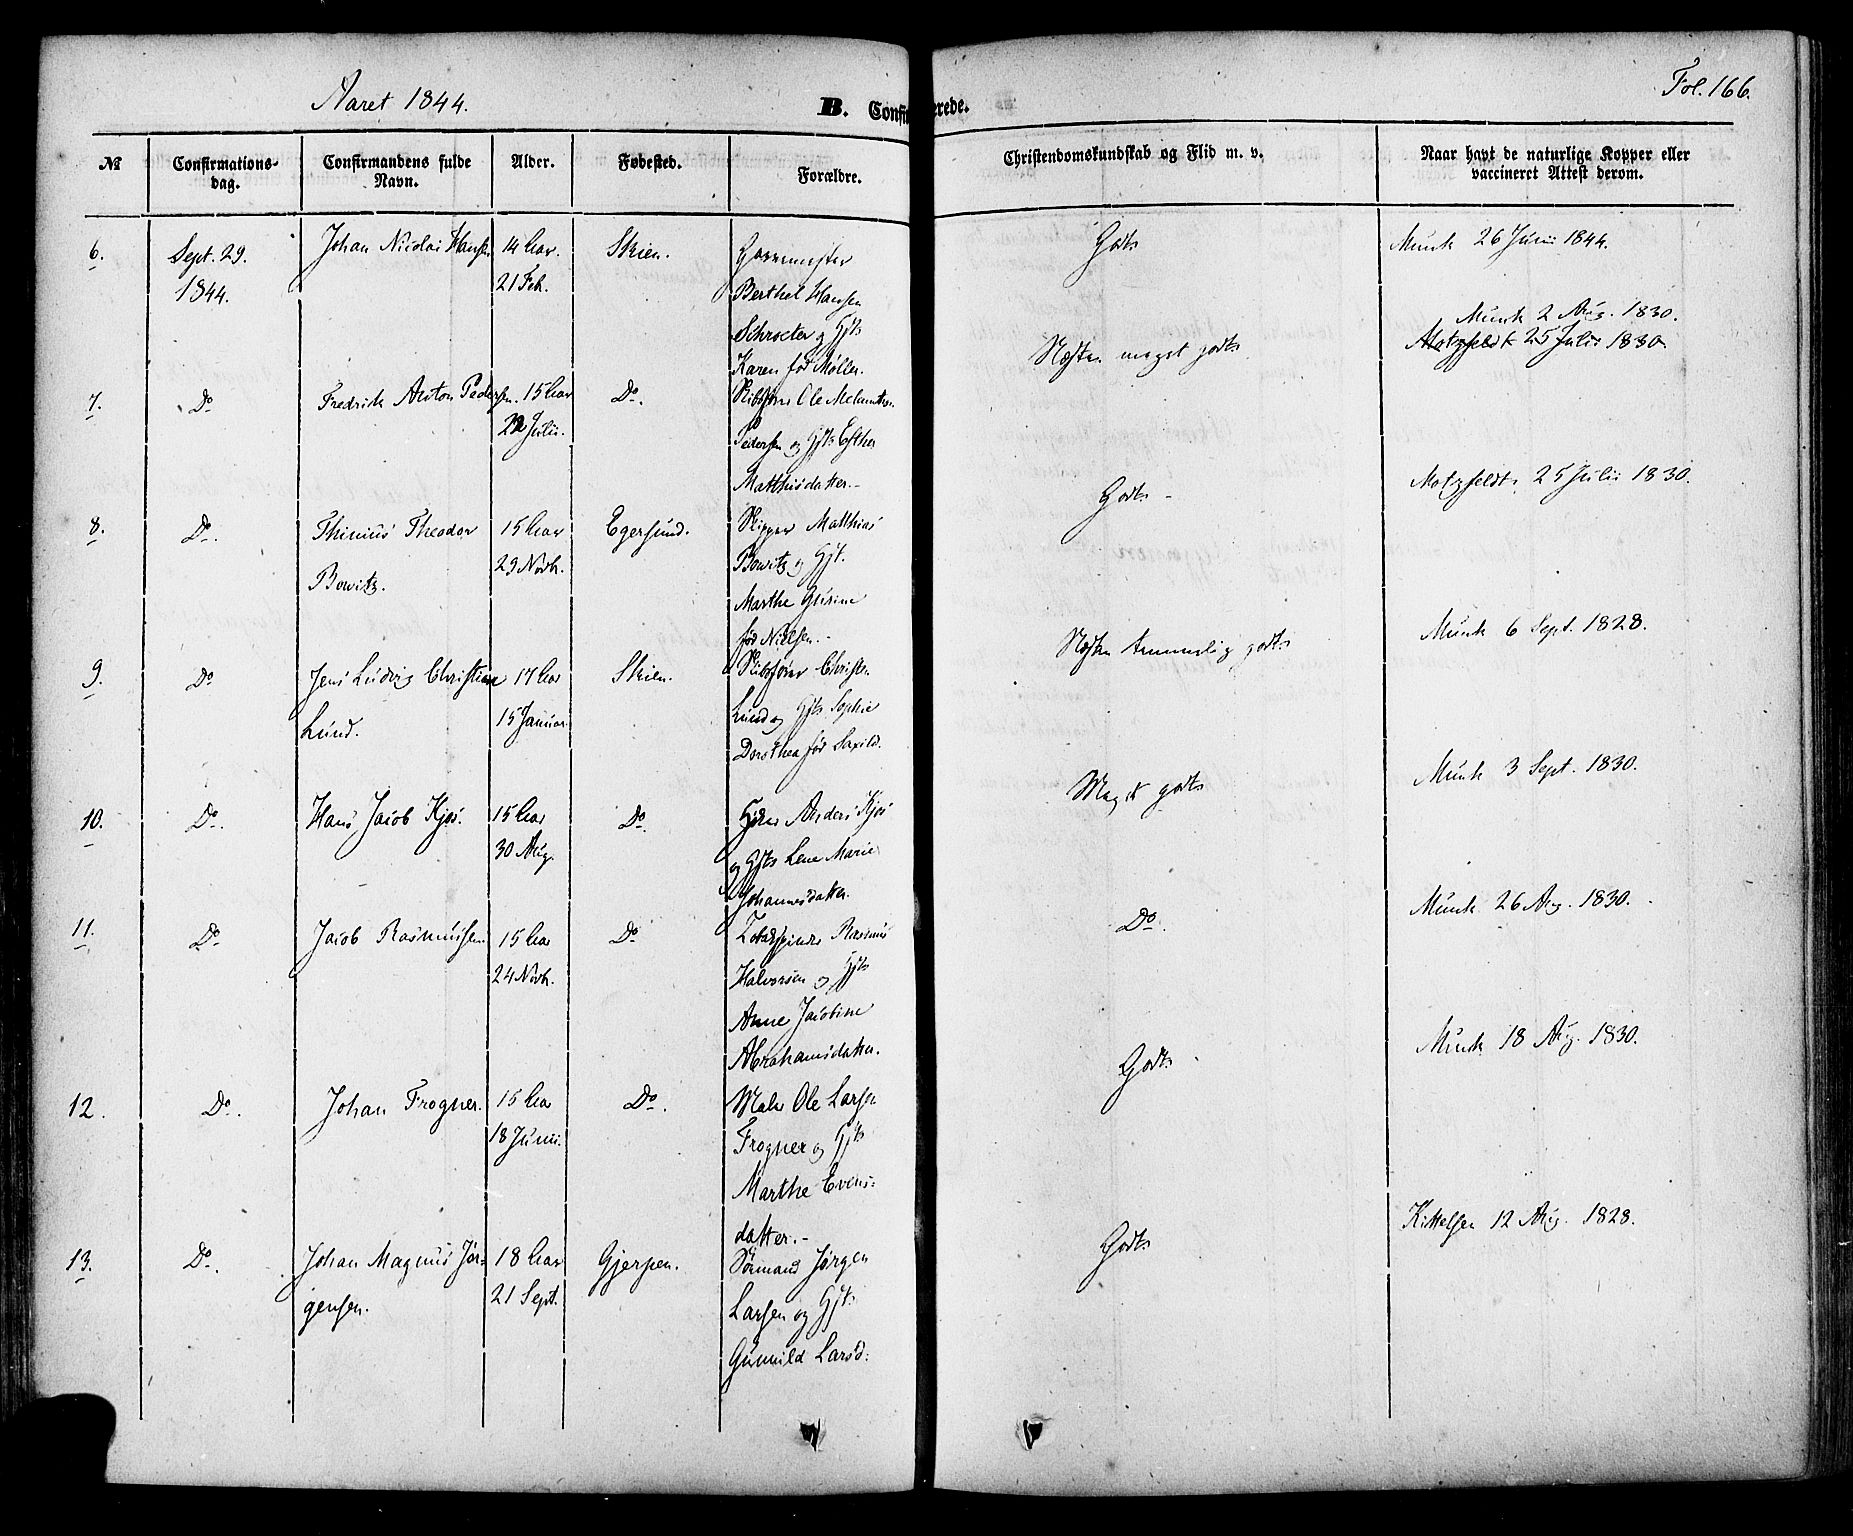 Aaret 1844.
B. Confirmerede.
Fol. 166.
№
Confirmations-
dag.
Confirmandens fulde
Navn.
Alder.
Fødested.
Forældre.
Christendomskundskab og Flid m. v.
Naar havt de naturlige Kopper eller
vaccineret Attest derom.
6.
Sept. 29.
1844.
Johan Nicolai Hansen
14 Aar.
21 Feb.
Skien.
Berthel Hansen
Schroeter og Hst
Karen fød Møller.
Godt
Munk 26 Juni 1844.
7.
Do
Fredrik Anton Pedersen.
15 Aar
22 Julii.
Do.
Skibsfører Ole
Pedersen og Hst Esther
Matthisdatter.-
Næsten meget godt
Munk 2 Aug. 1830.
Motzfeldt 25 Julii 1830.
8.
Do.
Thinius Theodor
Bowitz.
15 Aar
29 Novb.
Egersund.
Skipper Matthias
Bowitz og Hst.
Marthe Gurine
fød Nielsen.-
Godt -
Motzfeldt, 25 Julii 1830.
9.
Do
Jens Ludvig Christian
Lund.
17 Aar
15 Januar.
Skien.
Skibsfører Christen
Lund og Hst Sophie
Dorothea fød Saxild.
Næsten temmelig godt
Munk 6 Sept. 1828.
10.
Do.
Hans Jacob Kjøs.
15 Aar
30 Aug.
Do.
Anders Kjøs
og Hst Lene Marie
Johannesdatter.
Meget godt
Munk 3 Sept. 1830.
11.
Do
Jacob Rasmussen
15 Aar
24 Novb.
Do
Rasmus
Halvorsen og Hst
Anne Jacobine
Abrahamsdatter.
Do.
Munk 26 Aug. 1830.
12.
Do.
Johan Frogner.
15 Aar
18 Junii.
Do.
Maler Ole Larsen
Frogner og Hst
Marthe Evens-
datter.-
Godt
Munk 18 Aug. 1830.
13.
Do.
Johan Magnus Jør-
gensen.
18 Aar
21 Sept.
Gjerpen.
Sømand Jørgen
Larsen og Hst
Gunnild Larsd:
Godt
Kittelsen 12 Aug. 1828.